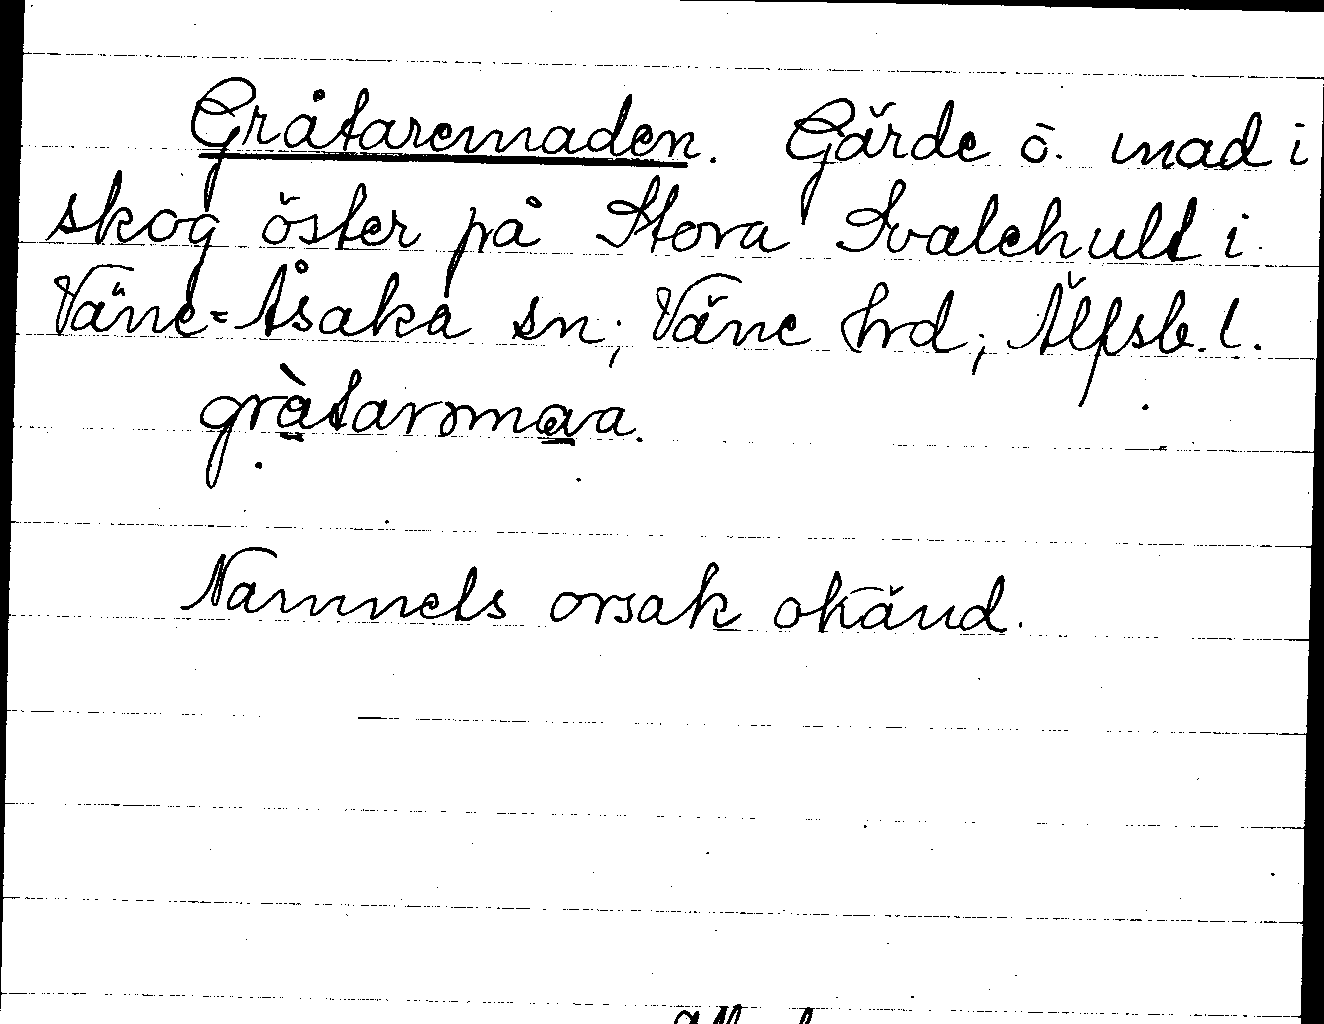 Gråtaremaden. Gärde o. mad i
skog öster på Stora Svalehult i
Väne-Åsaka sn; Väne hrd; Älfsb. l.
gràtarəmaa.
Namnets orsak okänd.